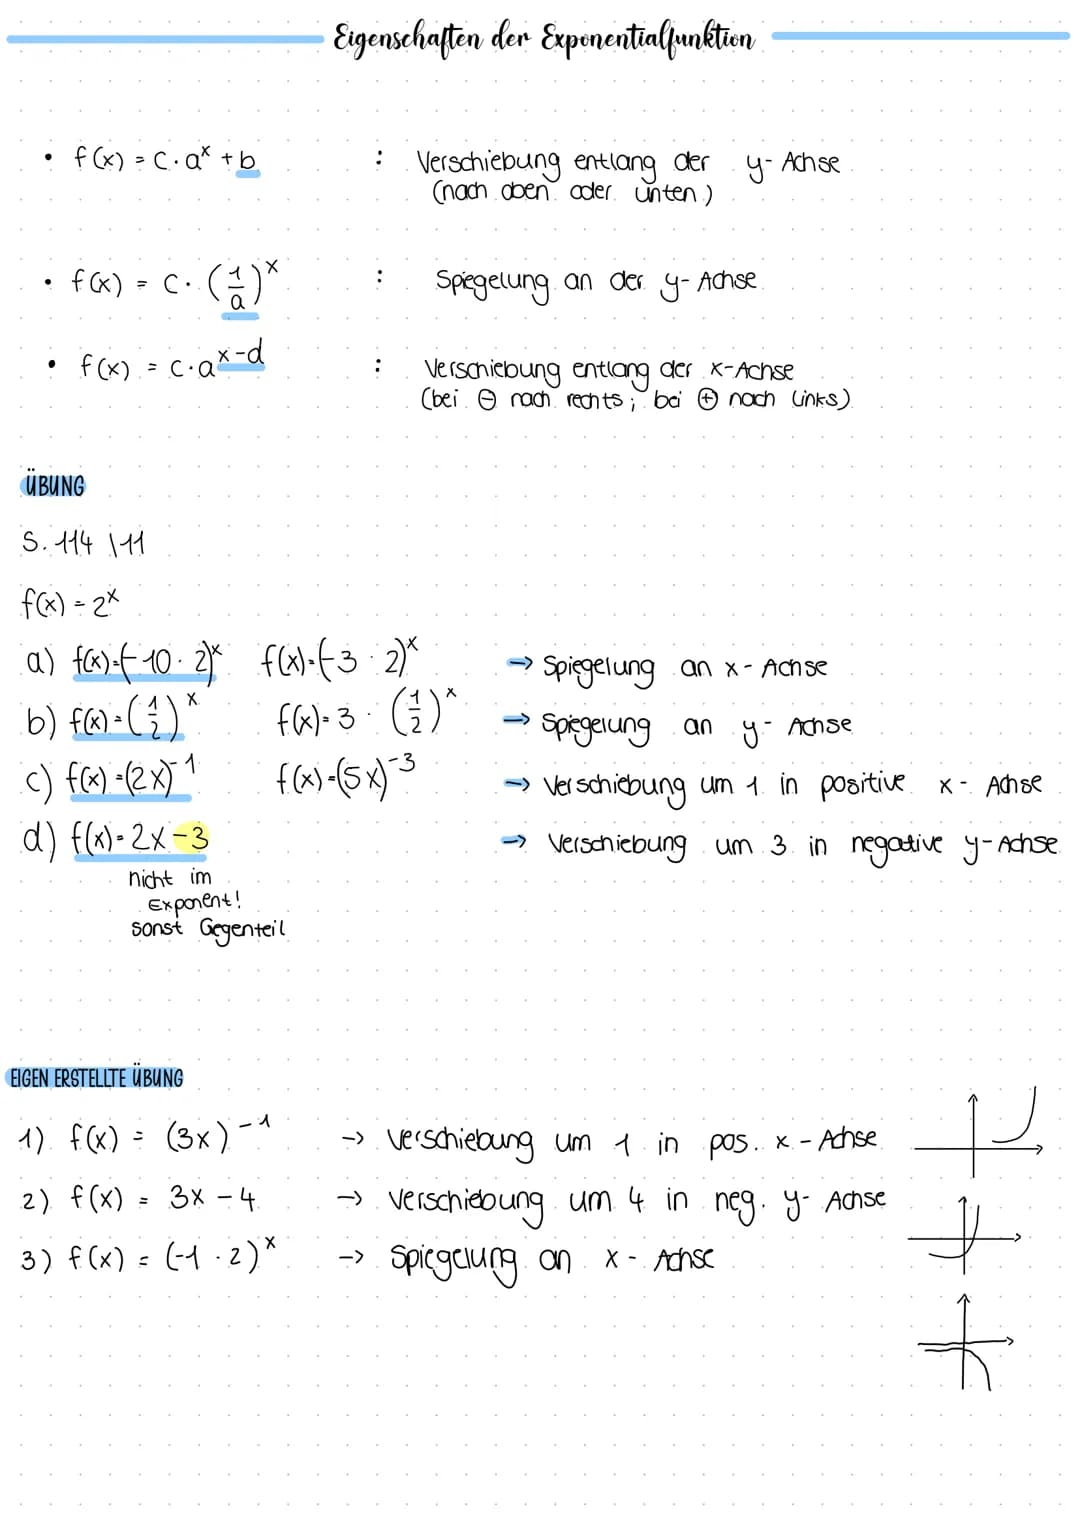 Eigenschaften der Exponentialfunktion
• f(x) = c · aˣ + b : Verschiebung entlang der y-Achse
(nach oben oder unten)
• f(x) = c · (1/a)ˣ : Spiegelung an der y-Achse
• f(x) = c · aˣ⁻ᵈ : Verschiebung entlang der x-Achse
(bei ⊖ nach rechts; bei ⊕ nach links)
ÜBUNG
S. 114 \11
f(x) = 2ˣ
a) f(x)=(-10 · 2)ˣ f(x)=(-3 · 2)ˣ → Spiegelung an x-Achse
b) f(x)=(1/2)ˣ f(x)=3 · (1/2)ˣ → Spiegelung an y-Achse
c) f(x)=(2x)⁻¹ f(x)=(5x)⁻³ → Verschiebung um 1 in positive x-Achse
d) f(x)=2x-3 → Verschiebung um 3 in negative y-Achse
nicht im
Exponent!
sonst Gegenteil
EIGEN ERSTELLTE ÜBUNG
1) f(x) = (3x)⁻¹ -> Verschiebung um 1 in pos. x-Achse
2) f(x) = 3x - 4 -> Verschiebung um 4 in neg. y-Achse
3) f(x) = (-1 · 2)ˣ -> Spiegelung an x-Achse